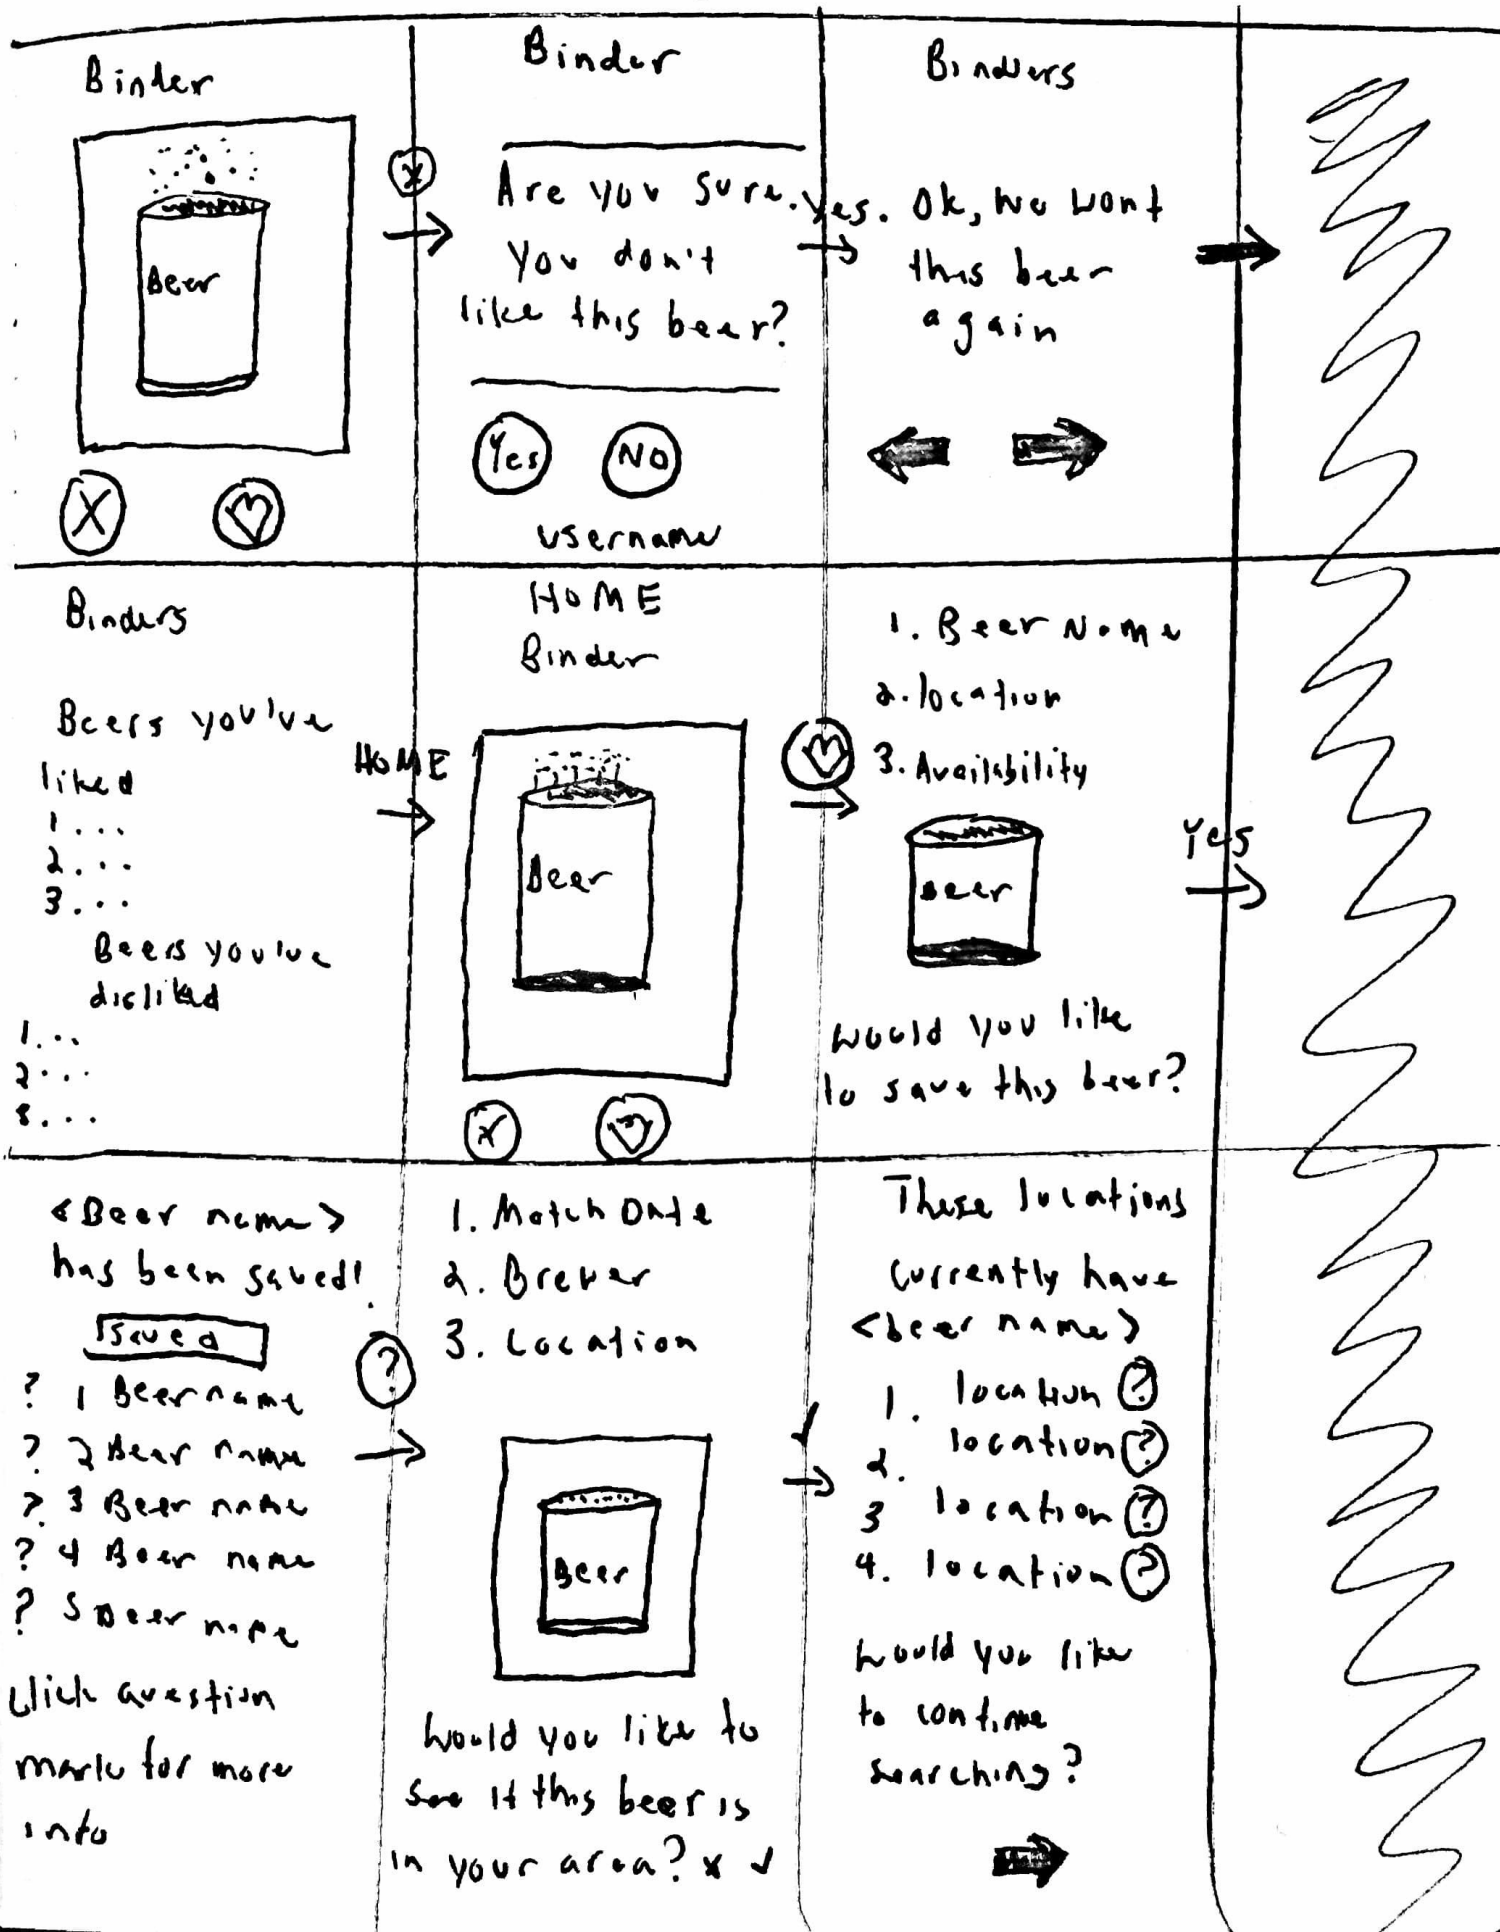 Binder
Beer
X
X
Binder
Are you sure
you don't
like this beer?
Yes
NO
username
yes.
Binders
Ok, we wont
this beer
again
Binders
Beers you've
liked
1...
2...
3...
Beers you've
disliked
1...
2...
3...
HOME
HOME
Binder
Beer
X
1. Beer Name
2. location
3. Availability
Beer
would you like
to save this beer?
Yes
<Beer name>
has been saved!
Saved
? 1 Beer name
? 2 Beer name
? 3 Beer name
? 4 Beer name
? 5 Beer name
Click question
mark for more
info
?
1. Match Date
2. Brewer
3. Location
Beer
Would you like to
see if this beer is
in your area? x ✓
✓
These locations
currently have
<beer name>
1. location ?
2. location ?
3 location ?
4. location ?
Would you like
to continue
searching?